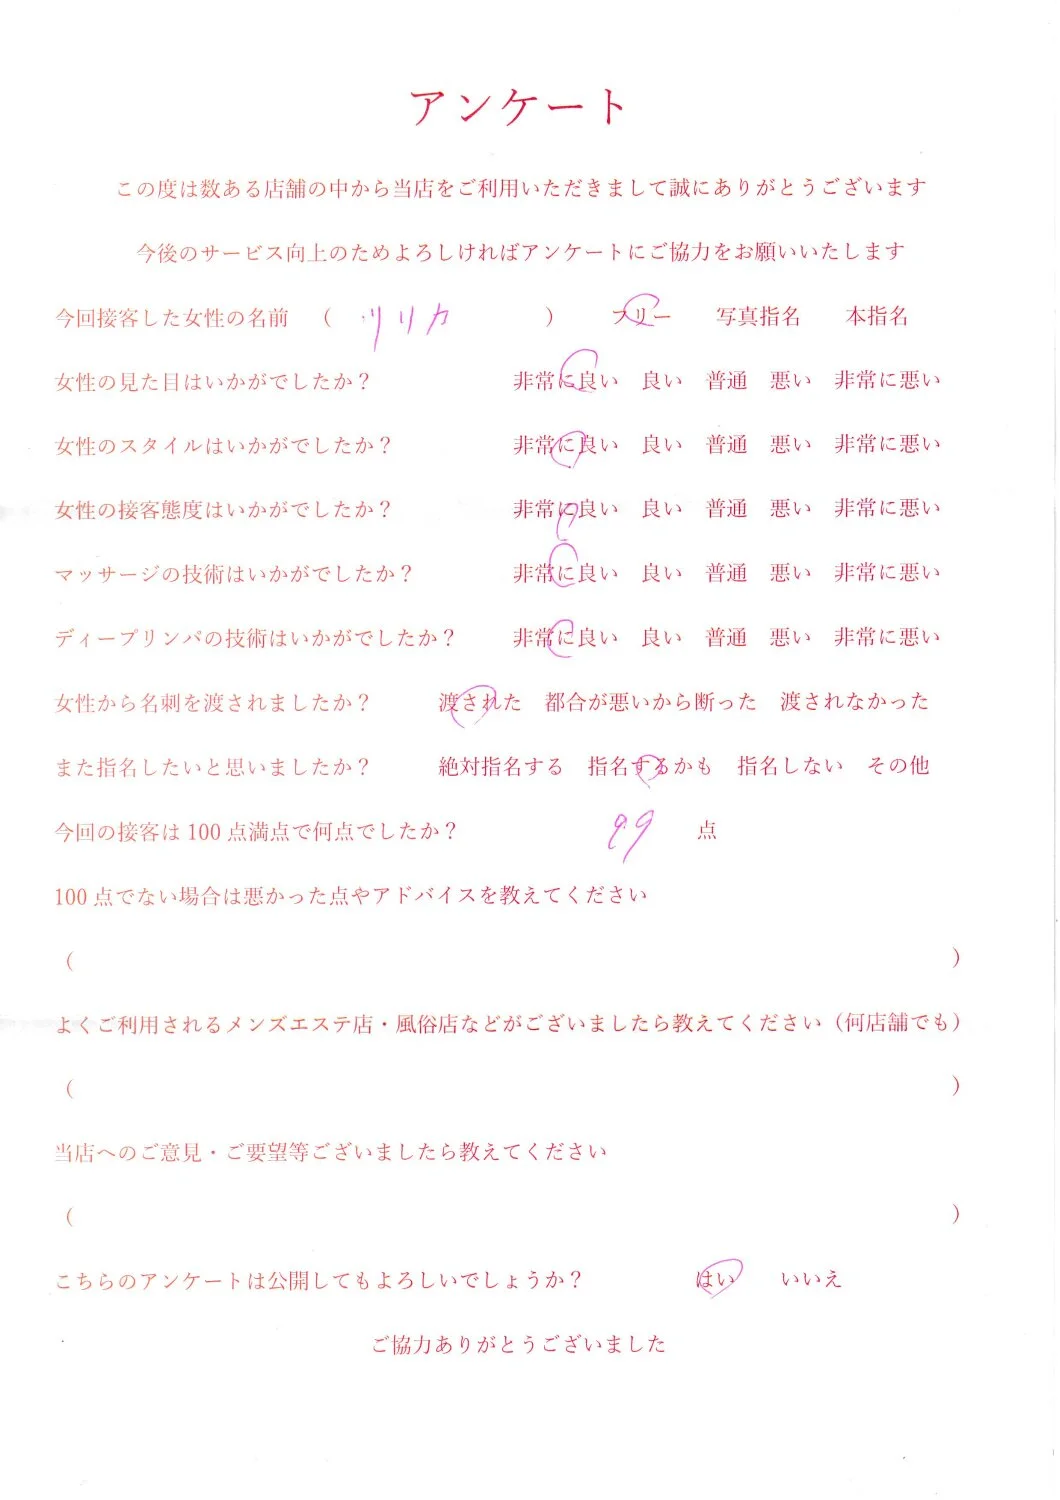 アンケート
この度は数ある店舗の中から当店をご利用いただきまして誠にありがとうございます
今後のサービス向上のためよろしければアンケートにご協力をお願いいたします
今回接客した女性の名前 （ リリカ ） フリー 写真指名 本指名
女性の見た目はいかがでしたか？ 非常に良い 良い 普通 悪い 非常に悪い
女性のスタイルはいかがでしたか？ 非常に良い 良い 普通 悪い 非常に悪い
女性の接客態度はいかがでしたか？ 非常に良い 良い 普通 悪い 非常に悪い
マッサージの技術はいかがでしたか？ 非常に良い 良い 普通 悪い 非常に悪い
ディープリンパの技術はいかがでしたか？ 非常に良い 良い 普通 悪い 非常に悪い
女性から名刺を渡されましたか？ 渡された 都合が悪いから断った 渡されなかった
また指名したいと思いましたか？ 絶対指名する 指名するかも 指名しない その他
今回の接客は 100 点満点で何点でしたか？ 99 点
100 点でない場合は悪かった点やアドバイスを教えてください
（ ）
よくご利用されるメンズエステ店・風俗店などがございましたら教えてください（何店舗でも）
（ ）
当店へのご意見・ご要望等ございましたら教えてください
（ ）
こちらのアンケートは公開してもよろしいでしょうか？ はい いいえ
ご協力ありがとうございました